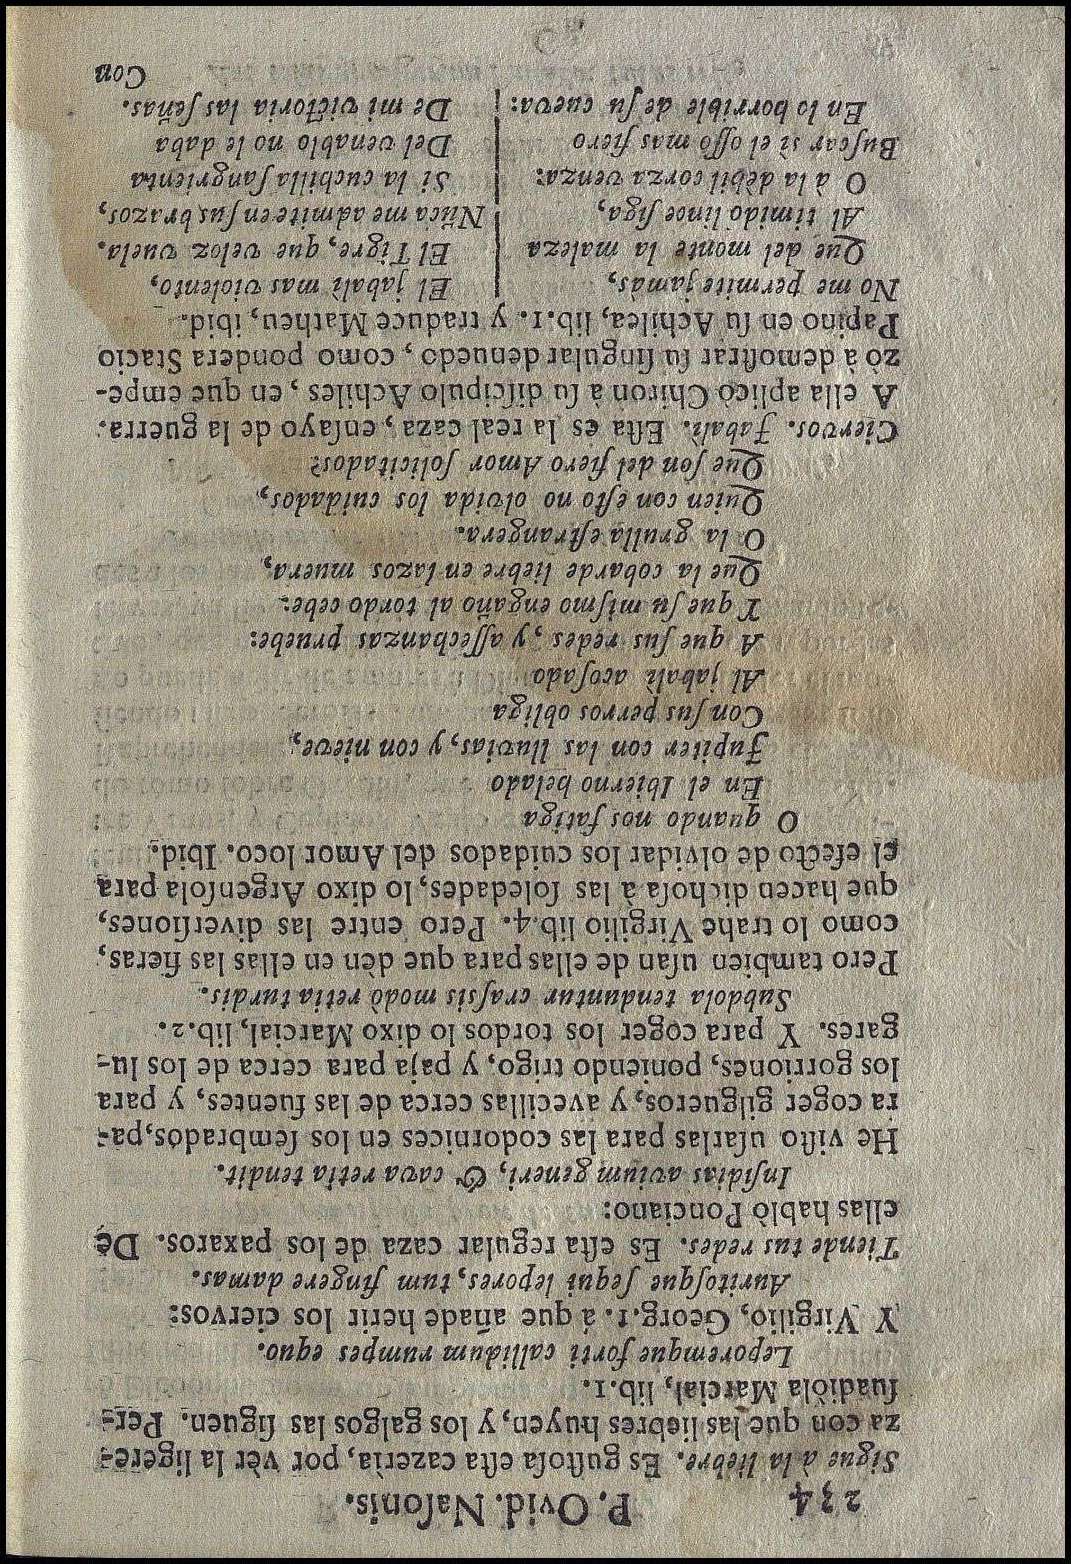 234 P. Ovid. Naſonis.
Sigue à la liebre. Es guſtoſa eſta cazerìa, por vèr la ligere-
za con que las liebres huyen, y los galgos las ſiguen. Per-
ſuadiòla Marcial, lib.1.
Leporemque forti callidum rumpes equo.
Y Virgilio, Georg.1. à que añade herir los ciervos:
Auritoſque ſequi lepores, tum figere damas.
Tiende tus redes. Es eſta regular caza de los paxaros. De
ellas hablò Ponciano:
Inſidias avium generi, & cava retia tendit.
He viſto uſarlas para las codornices en los ſembrados, pa-
ra coger gilgueros, y avecillas cerca de las fuentes, y para
los gorriones, poniendo trigo, y paja para cerca de los lu-
gares. Y para coger los tordos lo dixo Marcial, lib.2.
Subdola tenduntur craſsis modò retia turdis.
Pero tambien uſan de ellas para que dèn en ellas las fieras,
como lo trahe Virgilio lib.4. Pero entre las diverſiones,
que hacen dichoſa à las ſoledades, lo dixo Argenſola para
el efecto de olvidar los cuidados del Amor loco. Ibid.
O quando nos fatiga
En el Ibierno helado
Jupiter con las lluvias, y con nieve,
Con ſus perros obliga
Al jabalì acoſado
A que ſus redes, y aſſechanzas pruebe:
Y que ſu miſmo engaño al tordo cebe:
Que la cobarde liebre en lazos muera,
O la grulla eſtrangera.
Quien con eſto no olvida los cuidados,
Que ſon del fiero Amor ſolicitados?
Ciervos. Jabalì. Eſta es la real caza, enſayo de la guerra.
A ella aplicò Chiron à ſu diſcipulo Achiles, en que empe-
zò à demoſtrar ſu ſingular denuedo, como pondera Stacio
Papino en ſu Achilea, lib.1. y traduce Matheu, ibid.
No me permite jamàs,
Que del monte la maleza
Al timido lince ſiga,
O à la dèbil corza venza:
Buſcar sì el oſſo mas fiero
En lo horrible de ſu cueva:
El jabalì mas violento,
El Tigre, que veloz vuela.
Nũca me admite en ſus brazos,
Si la cuchilla ſangrienta
Del venablo no le daba
De mi victoria las ſeñas.
Con